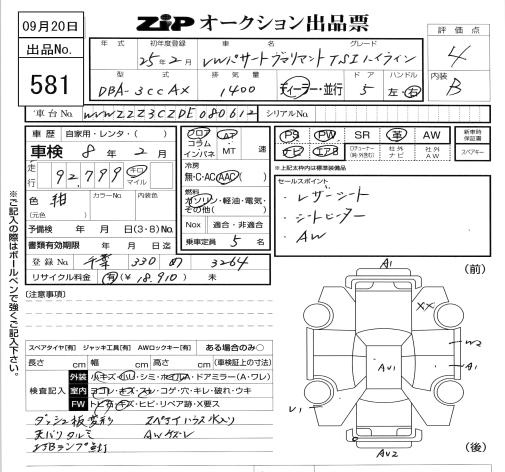 09月20日
ZIP オークション出品票
出品No.
581
年式 初年度登録 車名 グレード
25年2月 VWパサートヴァリアント TSIハイライン
型式 排気量 ドア ハンドル
DBA-3CCAX 1400 ディーラー・並行 5 左・右
評価点
4
内装
B
車台No. WVWZZZ3CZDE080612 シリアルNo.
車歴 自家用・レンタ・( )
車検 8年2月
走行 92,799 キロ マイル
色 紺 カラーNo. 内装色
(元色)
予備検 年 月 日(3・8)No.
書類有効期限 年 月 日迄
登録No. 千葉 330 め 3264
リサイクル料金 有(¥18,910) 未
フロア AT
コラム
インパネ MT 速
冷房
無・C・AC・AAC
燃料
ガソリン・軽油・電気・
その他( )
Nox 適合・非適合
乗車定員 5 名
PS PW SR 革 AW
ナビ エアB 社外ナビ 社外AW
新車時保証書
スペアキー
※上記太枠内は標準装備品
セールスポイント
・レザーシート
・シートヒーター
・AW
※ご記入の際はボールペンで強くご記入下さい。
[注意事項]
スペアタイヤ[有] ジャッキ工具[有] AWロックキー[有] ある場合のみ○
長さ cm 幅 cm 高さ cm (車検証上の寸法)
検査記入
外装 小キズ・小凹・シミ・ホイルA・ドアミラー(A・ワレ)
室内 ヨゴレ・キズ・スレ・コゲ・穴・キレ・破れ・ウキ
FW トビ石・キズ・ヒビ・リペア跡・X要ス
ダッシュ板変形 スペアタイヤハウス水入り
天バリタルミ AWケズレ
エアBランプ点灯
(前)
A1
XX
W2
A1
AU1
U1
AU2
(後)